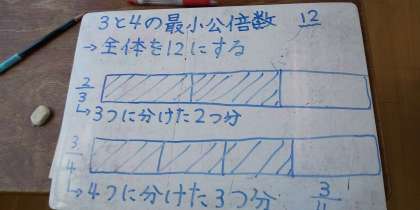 3と4の最小公倍数 12
→全体を12にする
2/3
↳3つに分けた2つ分
3/4
↳4つに分けた3つ分 3/4